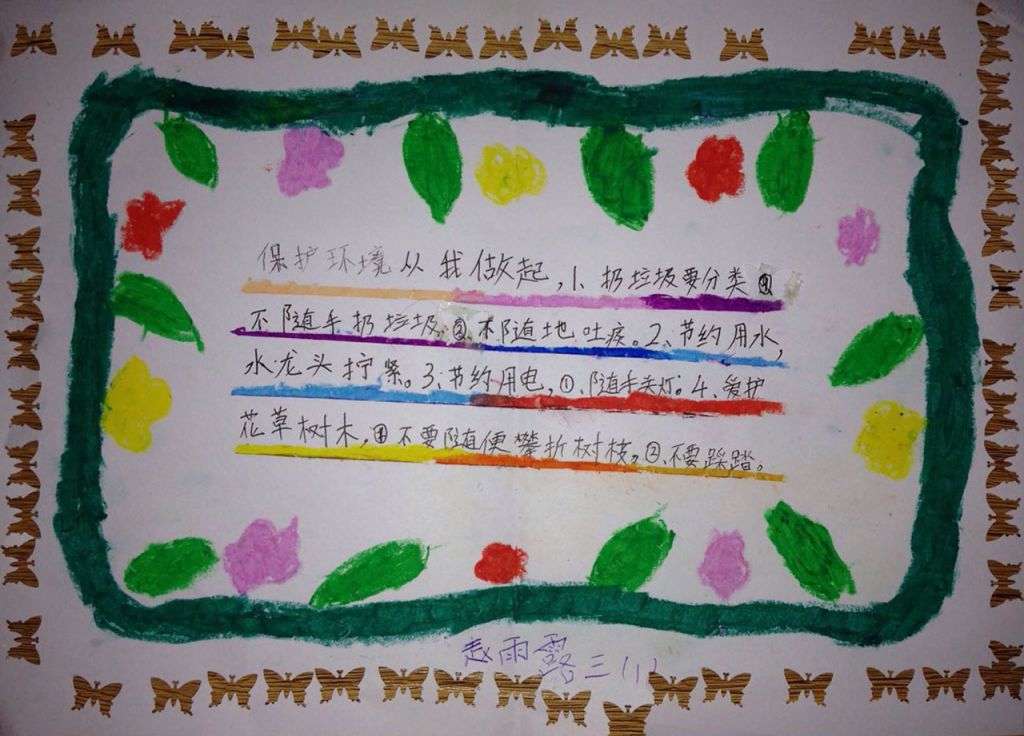 保护环境从我做起,1、扔垃圾要分类①
不随手扔垃圾②、不随地吐痰。2、节约用水,
水龙头拧紧。3、节约用电,①、随手关灯。4、爱护
花草树木,①不要随便攀折树枝,②、不要踩踏。
赵雨露三(1)